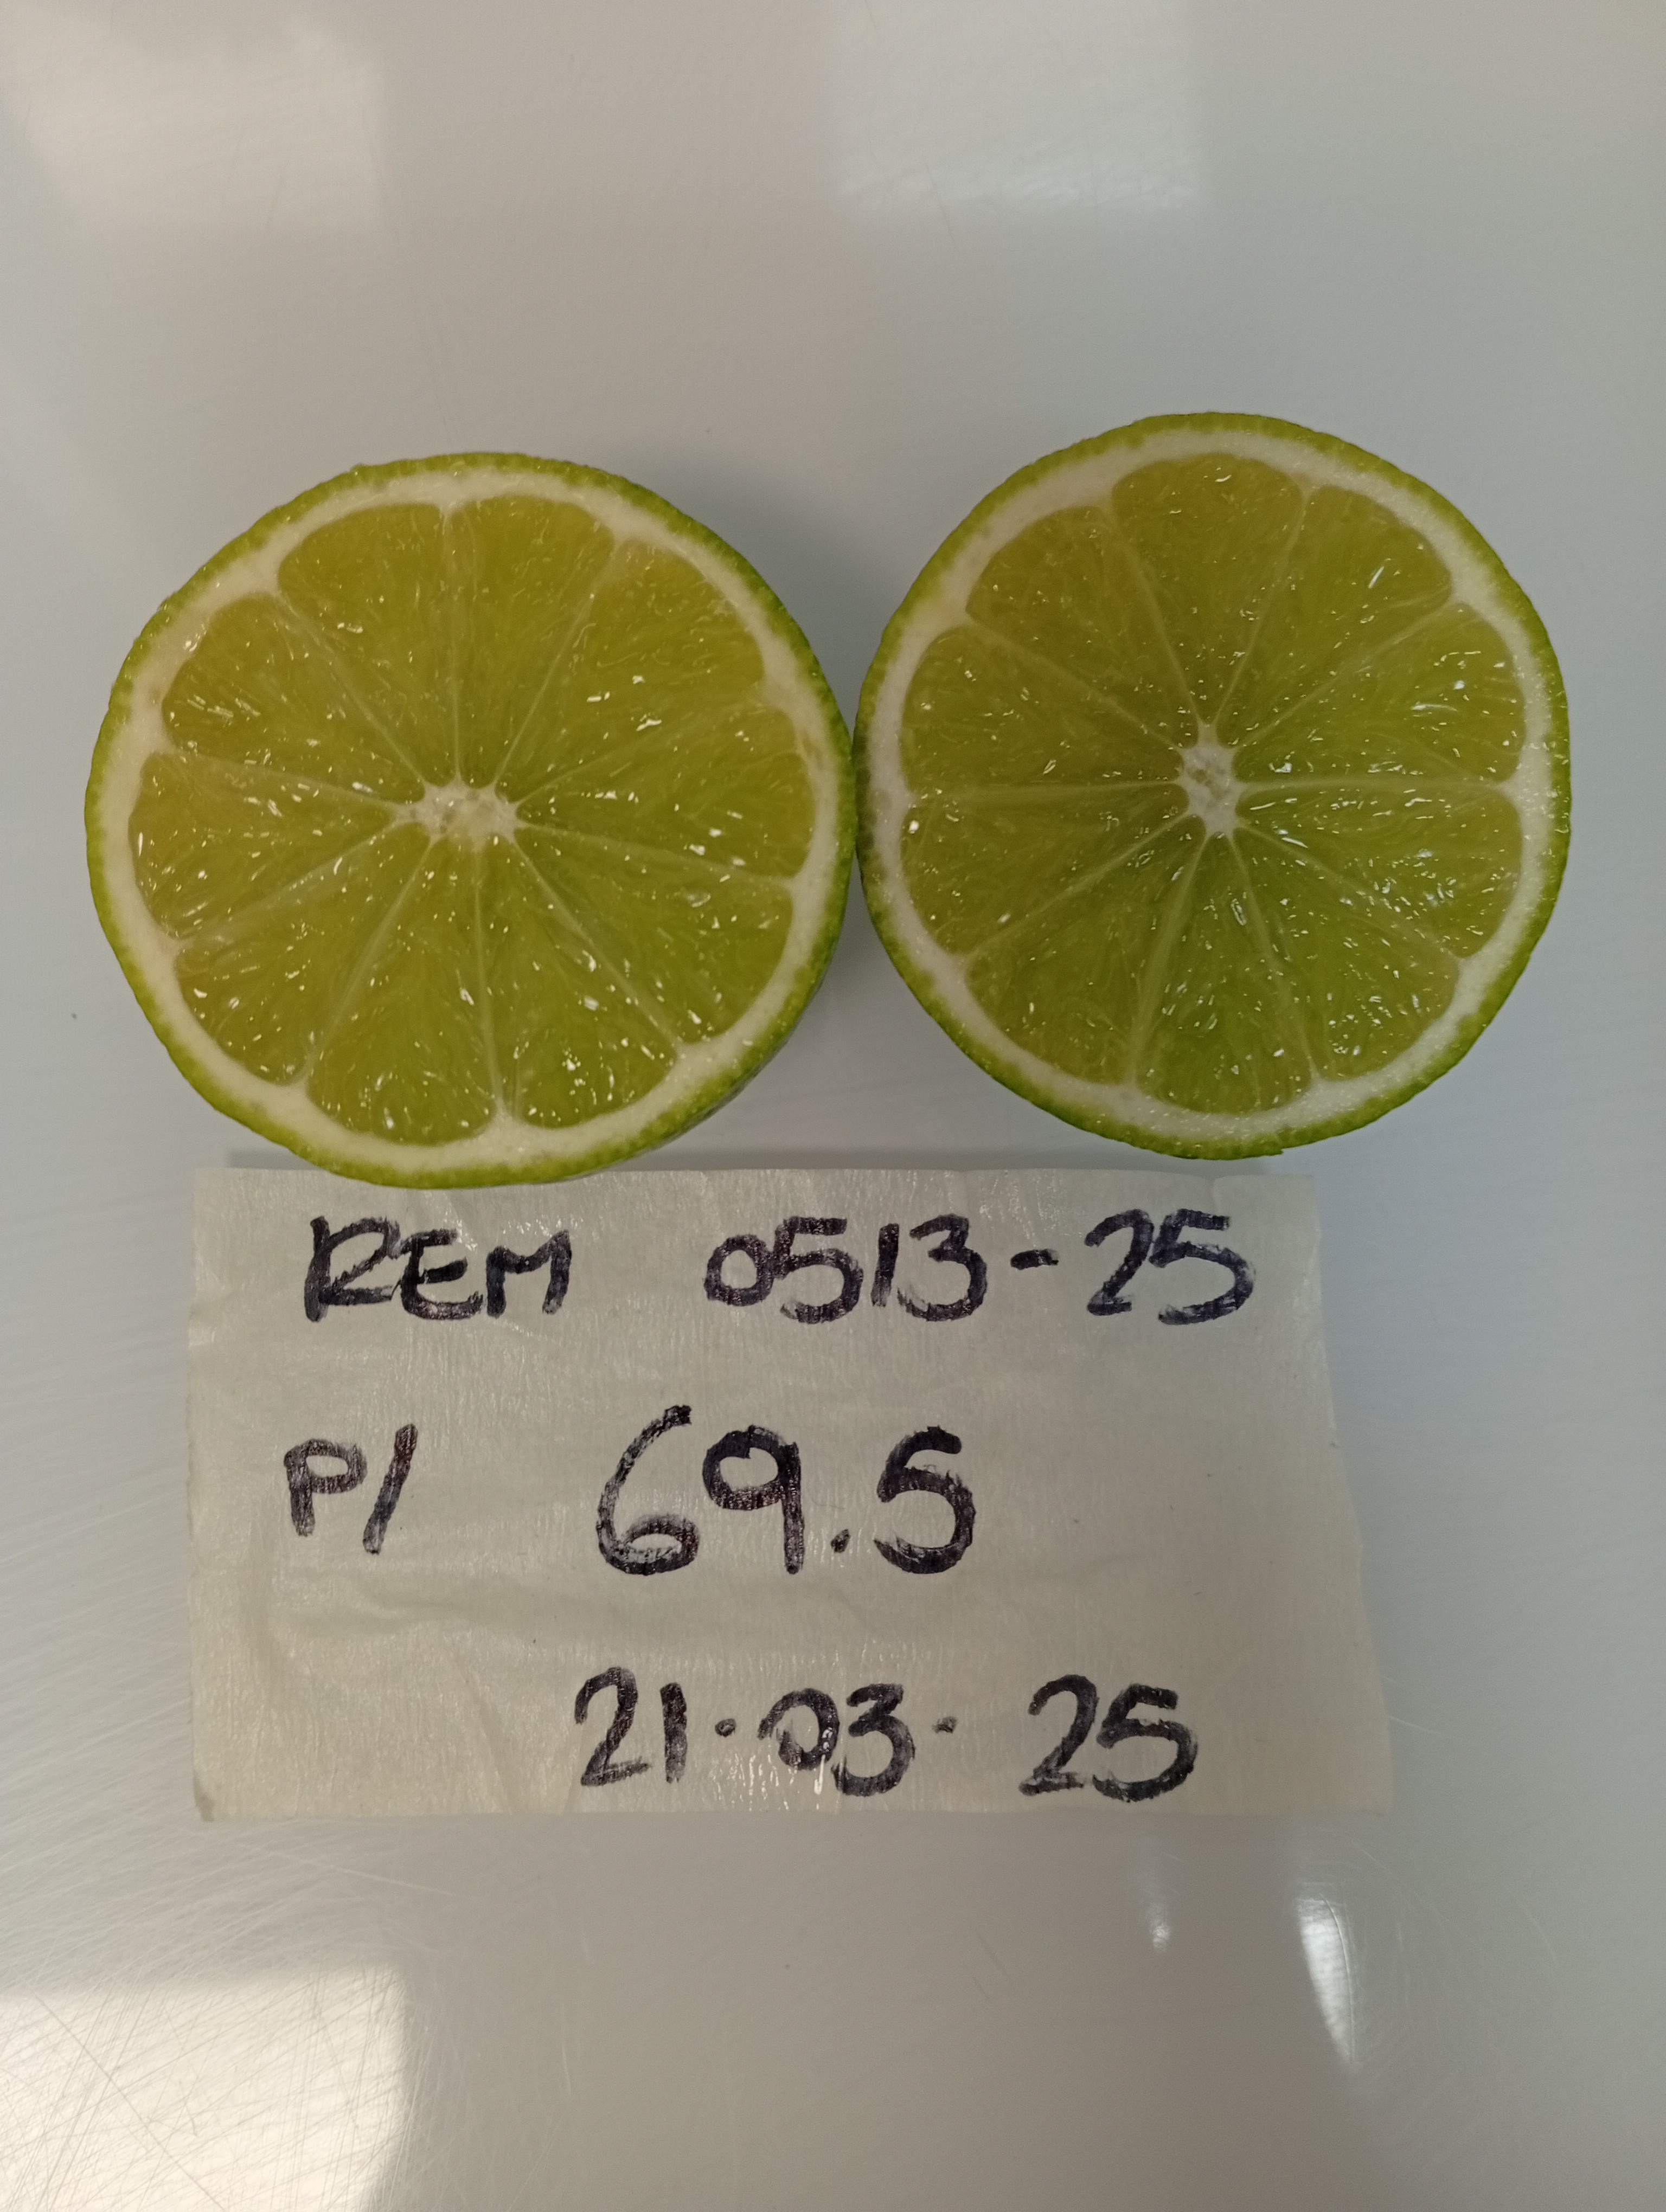 REM 0513-25
P/ 69.5
21.03.25